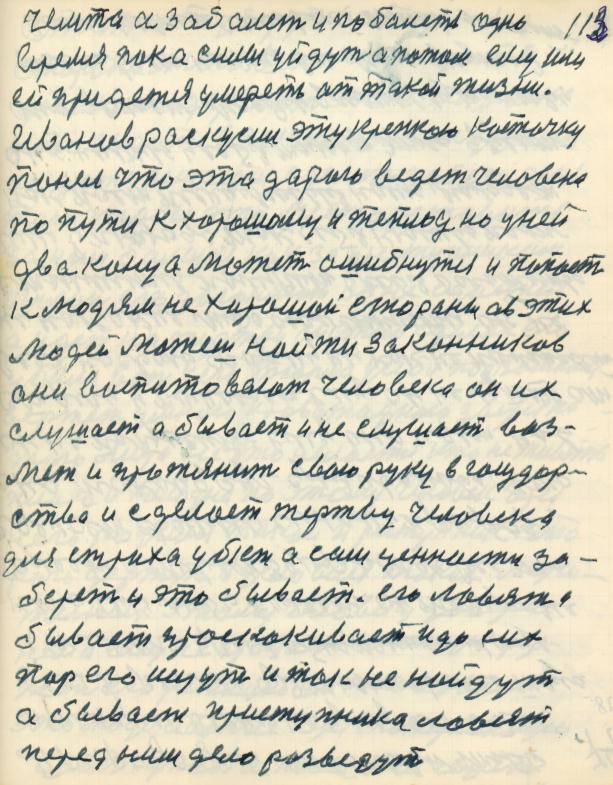 чемта а забалет и побалеть одно 113
время пока силы уйдут а потом ему или
ей придется умереть от такой жизни.
Иванов раскусил эту крепкою косточку
понел что эта дарога ведет человека
по пути к хорошому и теплоу но у ней
два конца может ошибнутся и попасть
к людям не хорошой стораны ав этих
людей можеш найти законников
они воспитовают человека он их
слушает а бывает и не слушает воз-
мет и протянит свою руку в государ-
ства и сделает жертву человека
для страха убьет а сам ценности за-
берет и это бывает. его ловят.
бывает проскакивает и до сих
пор его ищут и так не найдут
а бывает приступника ловят
перед ним дело разведут